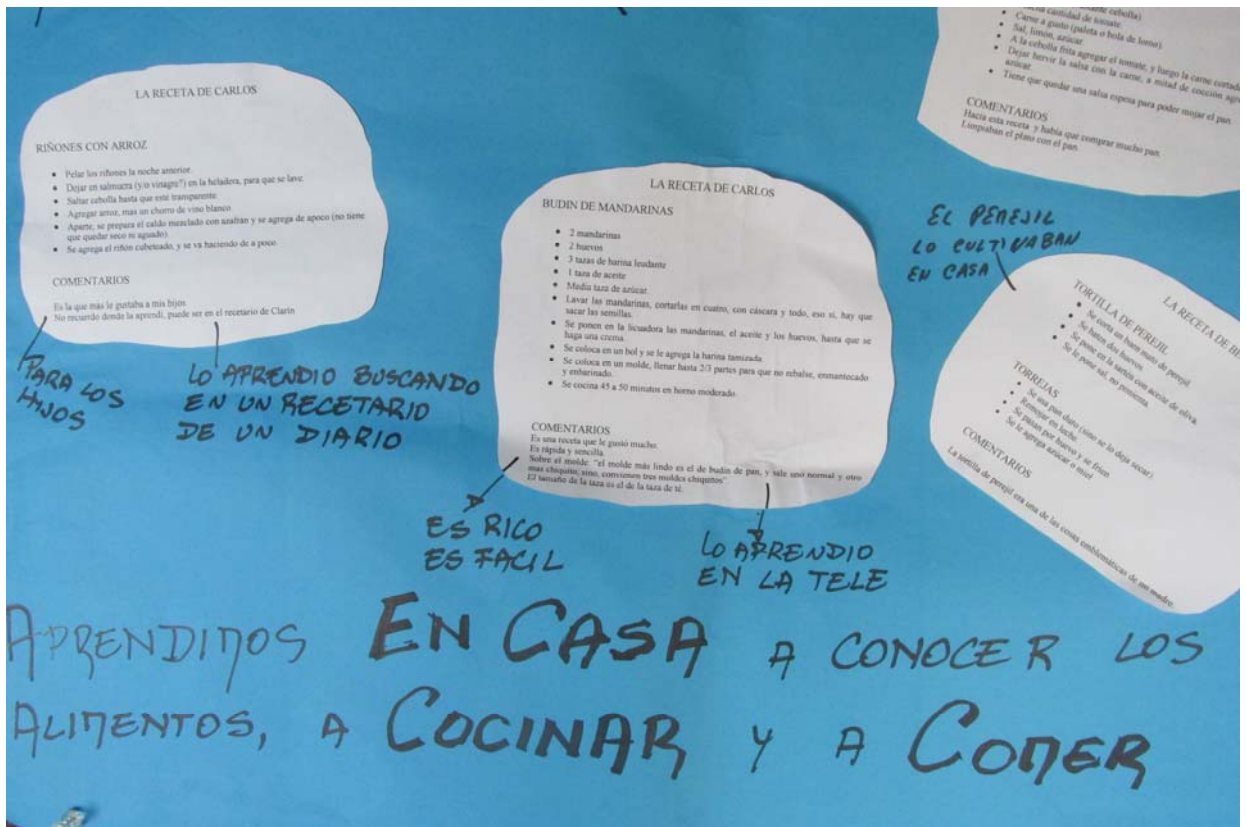 LA RECETA DE CARLOS
RIÑONES CON ARROZ
• Pelar los riñones la noche anterior.
• Dejar en salmuera (y/o vinagre?) en la heladera, para que se lave.
• Saltar cebolla hasta que esté transparente.
• Agregar arroz, mas un chorro de vino blanco.
• Aparte, se prepara el caldo mezclado con azafran y se agrega de apoco (no tiene
que quedar seco ni aguado).
• Se agrega el riñón cubeteado, y se va haciendo de a poco.
COMENTARIOS
Es la que más le gustaba a mis hijos
No recuerdo donde la aprendí, puede ser en el recetario de Clarín
PARA LOS
HIJOS
LO APRENDIO BUSCANDO
EN UN RECETARIO
DE UN DIARIO
LA RECETA DE CARLOS
BUDIN DE MANDARINAS
• 2 mandarinas
• 2 huevos
• 3 tazas de harina leudante
• 1 taza de aceite
• Media taza de azúcar.
• Lavar las mandarinas, cortarlas en cuatro, con cáscara y todo, eso si, hay que
sacar las semillas.
• Se ponen en la licuadora las mandarinas, el aceite y los huevos, hasta que se
haga una crema.
• Se coloca en un bol y se le agrega la harina tamizada.
• Se coloca en un molde, llenar hasta 2/3 partes para que no rebalse, enmantecado
y enharinado.
• Se cocina 45 a 50 minutos en horno moderado.
COMENTARIOS
Es una receta que le gustó mucho.
Es rápida y sencilla.
Sobre el molde: "el molde más lindo es el de budín de pan, y sale uno normal y otro
mas chiquito, sino, convienen tres moldes chiquitos".
El tamaño de la taza es el de la taza de té.
ES RICO
ES FACIL
LO APRENDIO
EN LA TELE
cebolla)
cantidad de tomate.
• Carne a gusto (paleta o bola de lomo).
• Sal, limón, azúcar.
• A la cebolla frita agregar el tomate, y luego la carne cortada
• Dejar hervir la salsa con la carne, a mitad de cocción agre
azúcar.
• Tiene que quedar una salsa espesa para poder mojar el pan.
COMENTARIOS
Hacía esta receta y había que comprar mucho pan.
Limpiaban el plato con el pan.
EL PEREJIL
LO CULTIVABAN
EN CASA
LA RECETA DE
TORTILLA DE PEREJIL
• Se corta un buen mato de perejil
• Se baten dos huevos.
• Se pone en la sartén con aceite de oliva.
• Se le pone sal, no pimienta.
TORREJAS
• Se usa pan duro (sino se lo deja secar).
• Remojar en leche.
• Se pasan por huevo y se fríen
• Se le agrega azúcar o miel
COMENTARIOS
La tortilla de perejil era una de las cosas emblemáticas de mi madre.
APRENDIMOS EN CASA A CONOCER LOS
ALIMENTOS, A COCINAR Y A COMER